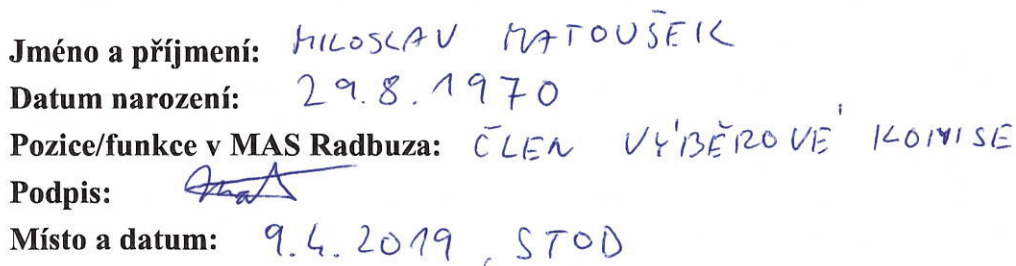 Jméno a příjmení: MILOSLAV MATOUŠEK
Datum narození: 29.8.1970
Pozice/funkce v MAS Radbuza: ČLEN VÝBĚROVÉ KOMISE
Podpis:
Místo a datum: 9.4.2019, STOD